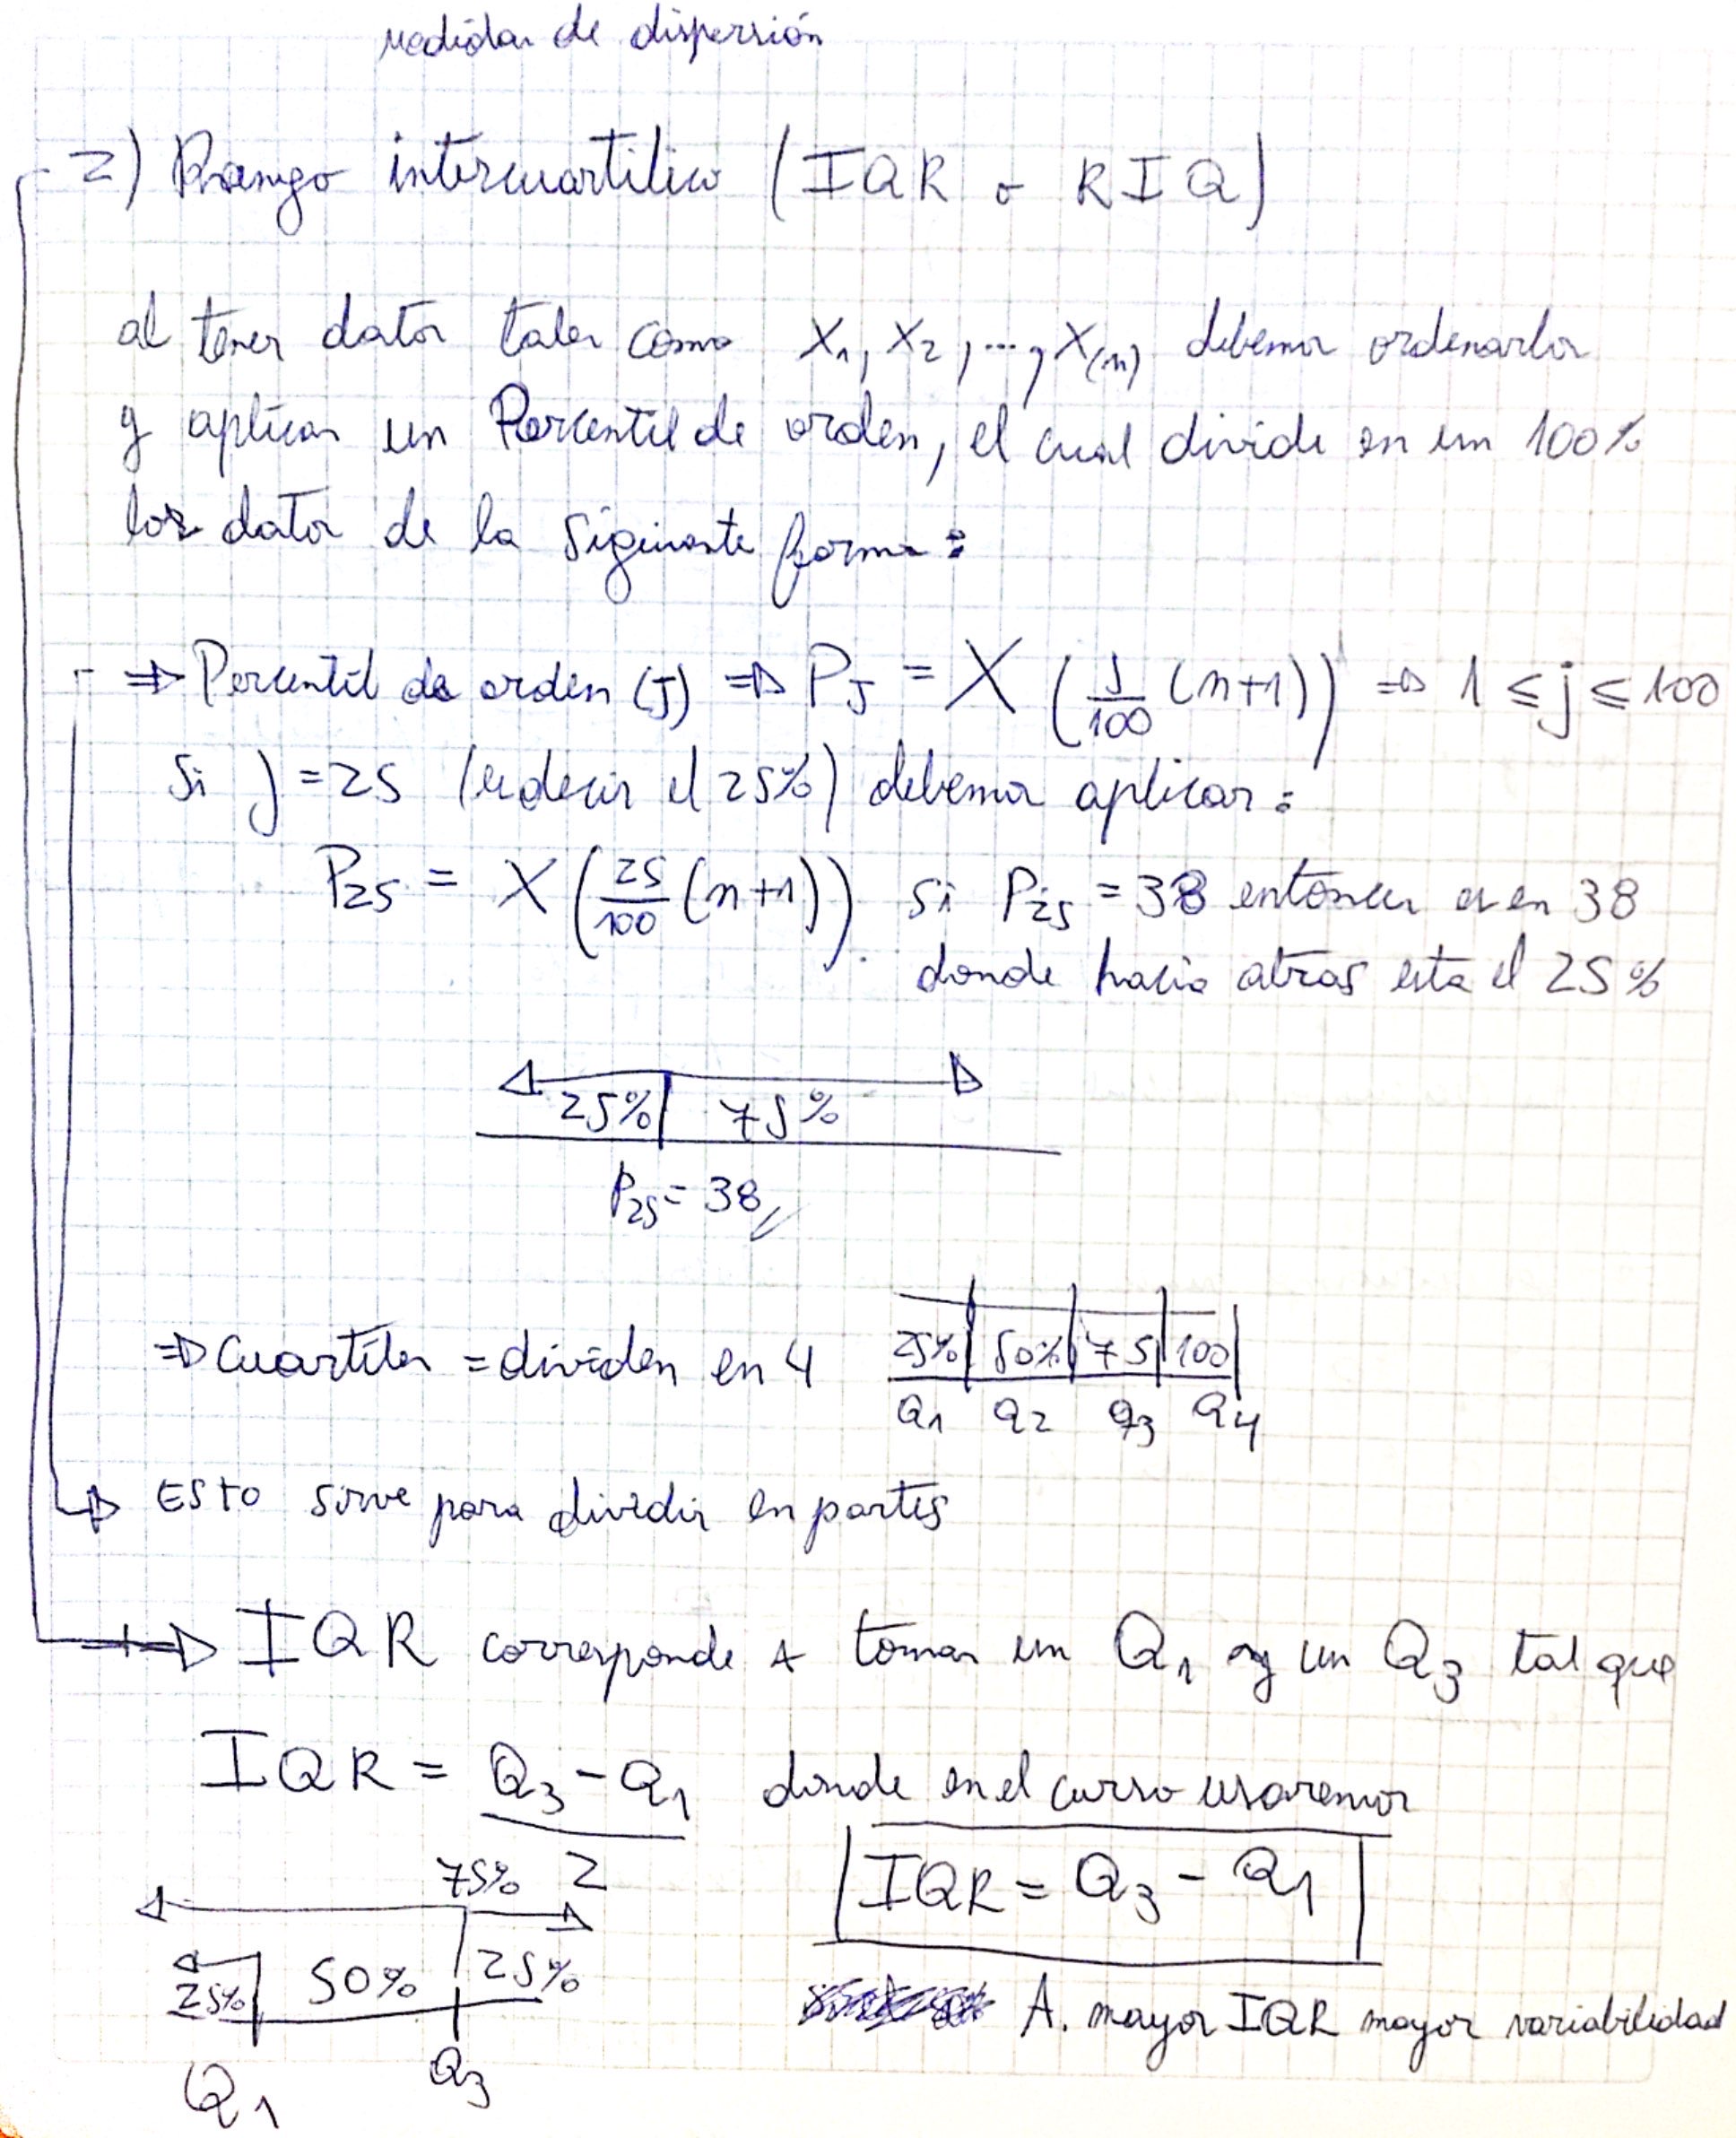 medidas de dispersión
2) Rango intercuartilico (IQR o RIQ)
al tener datos tales como X1, X2, ..., X(n) debemos ordenarlos
y aplicar un Percentil de orden, el cual divide en un 100%
los datos de la siguiente forma:
⇒ Percentil de orden (J) ⇒ PJ = X (J/100 (n+1)) ⇒ 1 ≤ j ≤ 100
Si j = 25 (es decir el 25%) debemos aplicar:
P25 = X (25/100 (n+1)). si P25 = 38 entonces es en 38
donde hacia atras esta el 25%
25% | 75%
P25 = 38
⇒ Cuartiles = dividen en 4 25% | 50% | 75 | 100 |
Q1 Q2 Q3 Q4
Esto sirve para dividir en partes
⇒ IQR corresponde A tomar un Q1 y un Q3 tal que
IQR = Q3 - Q1 donde en el curso usaremos
75% 2
IQR = Q3 - Q1
25% 50% 25%
A. mayor IQR mayor variabilidad
Q1 Q3